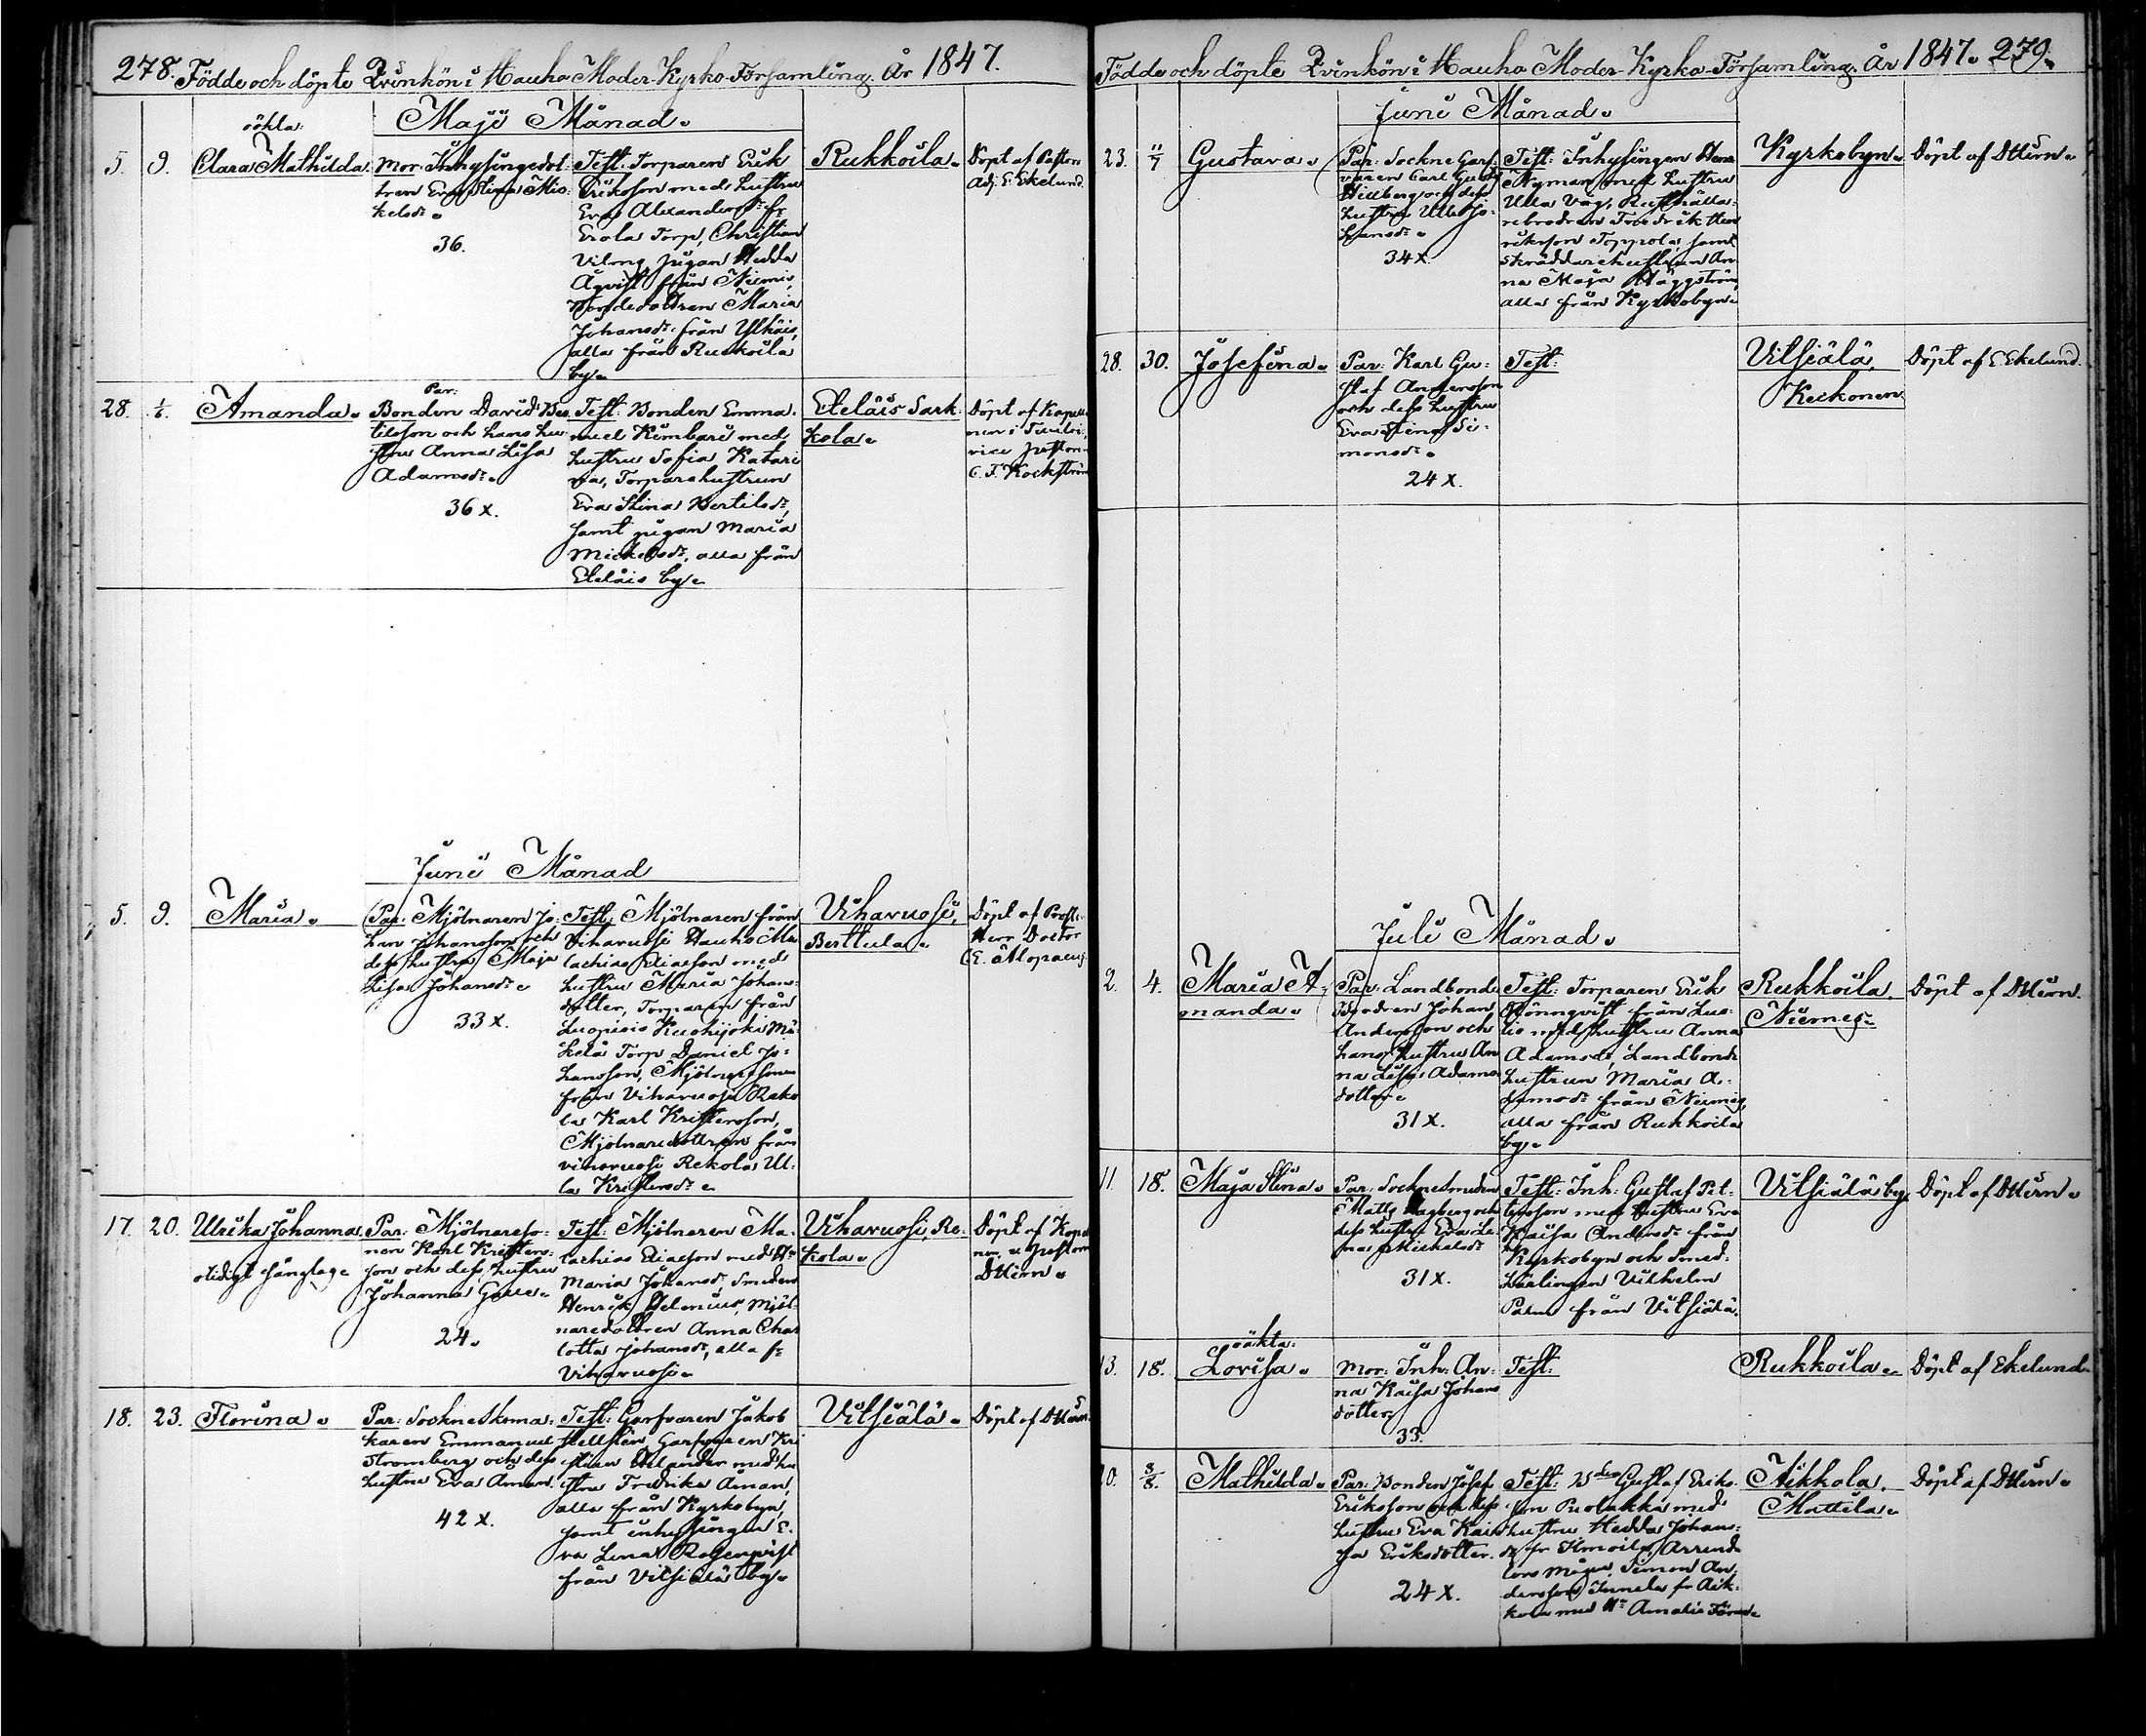 278. Födde och döpte Qvinkön i Hauho Moder-Kyrko-Församling. År 1847.
Maji Månad.
oähta:
5. 9. Clara Mathilda.
Mor: Inhysingedot-
tren Eva Stina Mic-
kelsdr.
36.
Test: Torparen Erik
Erikson med hustru
Eva Alexandersdr. fr.
Erola Torp, Christian
Vilong, pigan Hedda
Åqvist från Niemis,
Maria
Johansdr. från Ylhäis,
alla från Rukkoila
by.
Rukkoila.
Döpt af Pastors
Adj. E. Ekelund.
28. 1/6. Amanda.
Par:
Bonden David Ber-
tilsson och hans hu-
stru Anna Lisa
Adamsdr.
36 x.
Test: Bonden Emma-
nuel Kimbari med
hustru Sofia Katari-
na, Torparehustrun
Eva Stina Bertilsdr,
samt pigan Maria
Mickelsdr, alla från
Eteläis by.
Eteläis Sark-
kola.
Döpt af Kapella-
nen i Tuulois,
vice pastorn
C. F. Kockström
Juni Månad
5. 9. Maria.
Par: Mjölnaren Jo-
han Johansson och
dess hustru Maja
Lisa Johansdr.
33 x.
Test: Mjölnaren från
Viharuosi Hauho Ma-
lachias Eliasson med
hustru Maria Johans-
dotter, Torparen från
Luopiois Kuohijoki Mä-
kelä Torp Daniel Jo-
hansson, Mjölnaresonen
från Viharuosi Reko-
la Karl Kristersson,
Mjölnaredottren från
Viharuosi Rekola Ul-
la Kristersdr.
Viharuosi,
Berttula.
Döpt af Prosten
Herr Doctor
E. Alopaeus
17. 20. Ulrika Johanna.
otidigt sänglag.
Par: Mjölnareso-
nen Karl Kristers-
son och dess hustru
Johanna Gove.
24.
Test: Mjölnaren Ma-
lachias Eliasson med Hu
Maria Johansdr, Smeden
Henrik Helenius, Mjöl-
naredottren Anna Char-
lotta Johansdr, alla fr.
Viharuosi.
Viharuosi, Re-
kola.
Döpt af Kapella-
nen v. pastorn
D. Hirn.
18. 23. Florina.
Par: Sockneskoma-
karen Emmanuel
Strömberg och dess
hustru Eva Åman.
42 x.
Test: Garfvaren Jakob
Hellsten, Garfvaren Kri-
stian Helander med hu-
stru Fredrika Åman,
alla från Kyrkobyn,
samt inhysingen E-
va Lena Rosenqvist
från Vitsiälä by.
Vitsiälä.
Döpt af D. Hirn.
Födde och döpte Qvinkön i Hauho Moder-Kyrko-Församling. År 1847. 279.
Juni Månad.
23. 11/7 Gustava.
Par: Sockne Garf-
varen Carl Gustaf
Hillberg och dess
hustru Ulla Jo-
hansdr.
34 x.
Test: Inhysingen Henr.
Nyman med hustru
Ulla Vag, Rusthålla-
rebrodren Fredrik Hen-
riksson Toppola, samt
skräddarehustrun An-
na Maja Häggström,
alla från Kyrkobyn.
Kyrkobyn.
Döpt af D Hirn.
28. 30. Josefina.
Par: Karl Gu-
staf Andersson
och dess hustru
Eva Stina Si-
monsdr.
24 x.
Test:
Vitsiälä,
Keikonen.
Döpt af E. Ekelund.
Juli Månad.
2. 4. Maria A-
manda.
Par: Landbonde
Brodren Johan
Andersson och
hans hustru An-
na Lisa Adams-
dotter.
31 x.
Test: Torparen Erik
Rönnqvist från Luo-
lio med hustru Anna
Adamsdr, Landbonde
hustrun Maria A-
damsdr från Niemis,
alla från Rukkoila
by.
Rukkoila,
Niemis.
Döpt af D Hirn.
11. 18. Maja Stina.
Par: Socknesmeden
Matts Hagberg och
dess hustru Eva Le-
na Mickelsdr
31 x.
Test: Inh: Gustaf Pet-
tersson med hustru Eva
Kaisa Andersdr från
Kyrkobyn och smed-
lärlingen Vilhelm
Palm från Vitsiälä.
Vitsiälä by.
Döpt af D Hirn.
13. 18. oäkta:
Lovisa.
Mor: Inh: An-
na Kaisa Johans-
dotter
33.
Test:
Rukkoila.
Döpt af Ekelund.
20. 3/8. Mathilda.
Par: Bonden Josef
Eriksson och dess
hustru Eva Kai-
sa Eriksdotter.
24 x.
Test: Bden Gustaf Eriks-
son Puolakka med
hustru Hedda Johans-
dr fr Ilmoila, Arrenda-
tors mågen Simon An-
dersson Innala fr Aik-
kola med Hu Amalia
Aikkola,
Mattila.
Döpt af D Hirn.